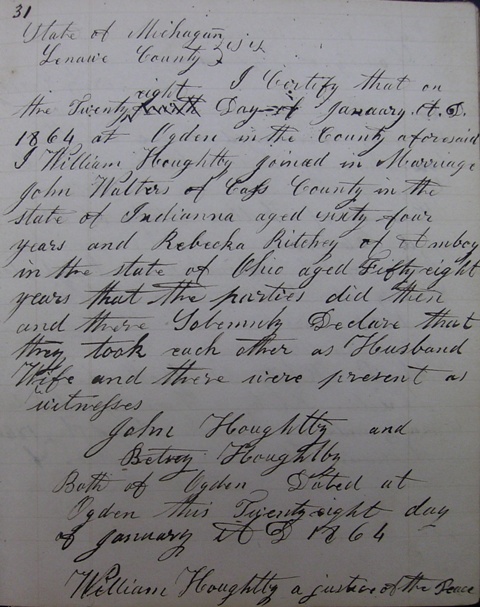 31
State of Michagan
Lenawe County } S S
right I Certify that on
the Twenty Day of January A. D.
1864 at Ogden in the County aforesaid
I William Houghtby joined in Marriage
John Walters of Cass County in the
state of Indianna aged sixty four
years and Rebecka Ritchey of Amboy
in the state of Ohio aged Fifty eight
years that the parties did then
and there Solemnly Declare that
they took each other as Husband
Wife and there were present as
witnesses
John Houghtby and
Betsey Houghtby
Both of Ogden Dated at
Ogden this Twenty eight day
of January A D 1864
William Houghtby a justice of the Peace